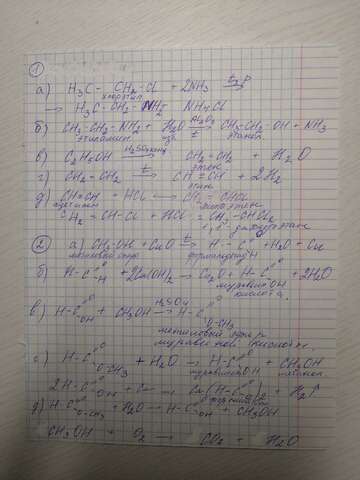 1
а) H3C - CH2 - Cl + 2NH3 t,p→
хлорэтил
→ H3C - CH2 - NH2 NH4Cl
б) CH3-CH2-NH2 + H2O Al2O3 t→ CH3-CH2-OH + NH3
этиламин
в) C2H5OH H2SO4 → CH2=CH2 + H2O
этен
г) CH2=CH2 t→ CH≡CH + 2H2
этин
д) CH≡CH + HCl → CH2 CHCl
ацетилен
CH2=CH-Cl + HCl = CH3-CHCl2
2 а) CH3-OH + CuO t→ H-C=O H + H2O + Cu
метиловый спирт
б) H-C=O -H + 2Cu(OH)2 → Cu2O + H-C=O OH + 2H2O
муравьин
кислота.
в) H-C=O OH + CH3OH H2SO4→ H-C=O O-CH3
метиловый эфир
муравьиной кислоты.
г) H-C=O O-CH3 + H2O → H-C=O OH + CH3OH
муравьин метанол
2H-C=O OH + → (H-C=O O)2 + H2↑
д) H-C=O O-CH3 + H2O → H-C=O OH + CH3OH
CH3OH + O2 → CO2 + H2O